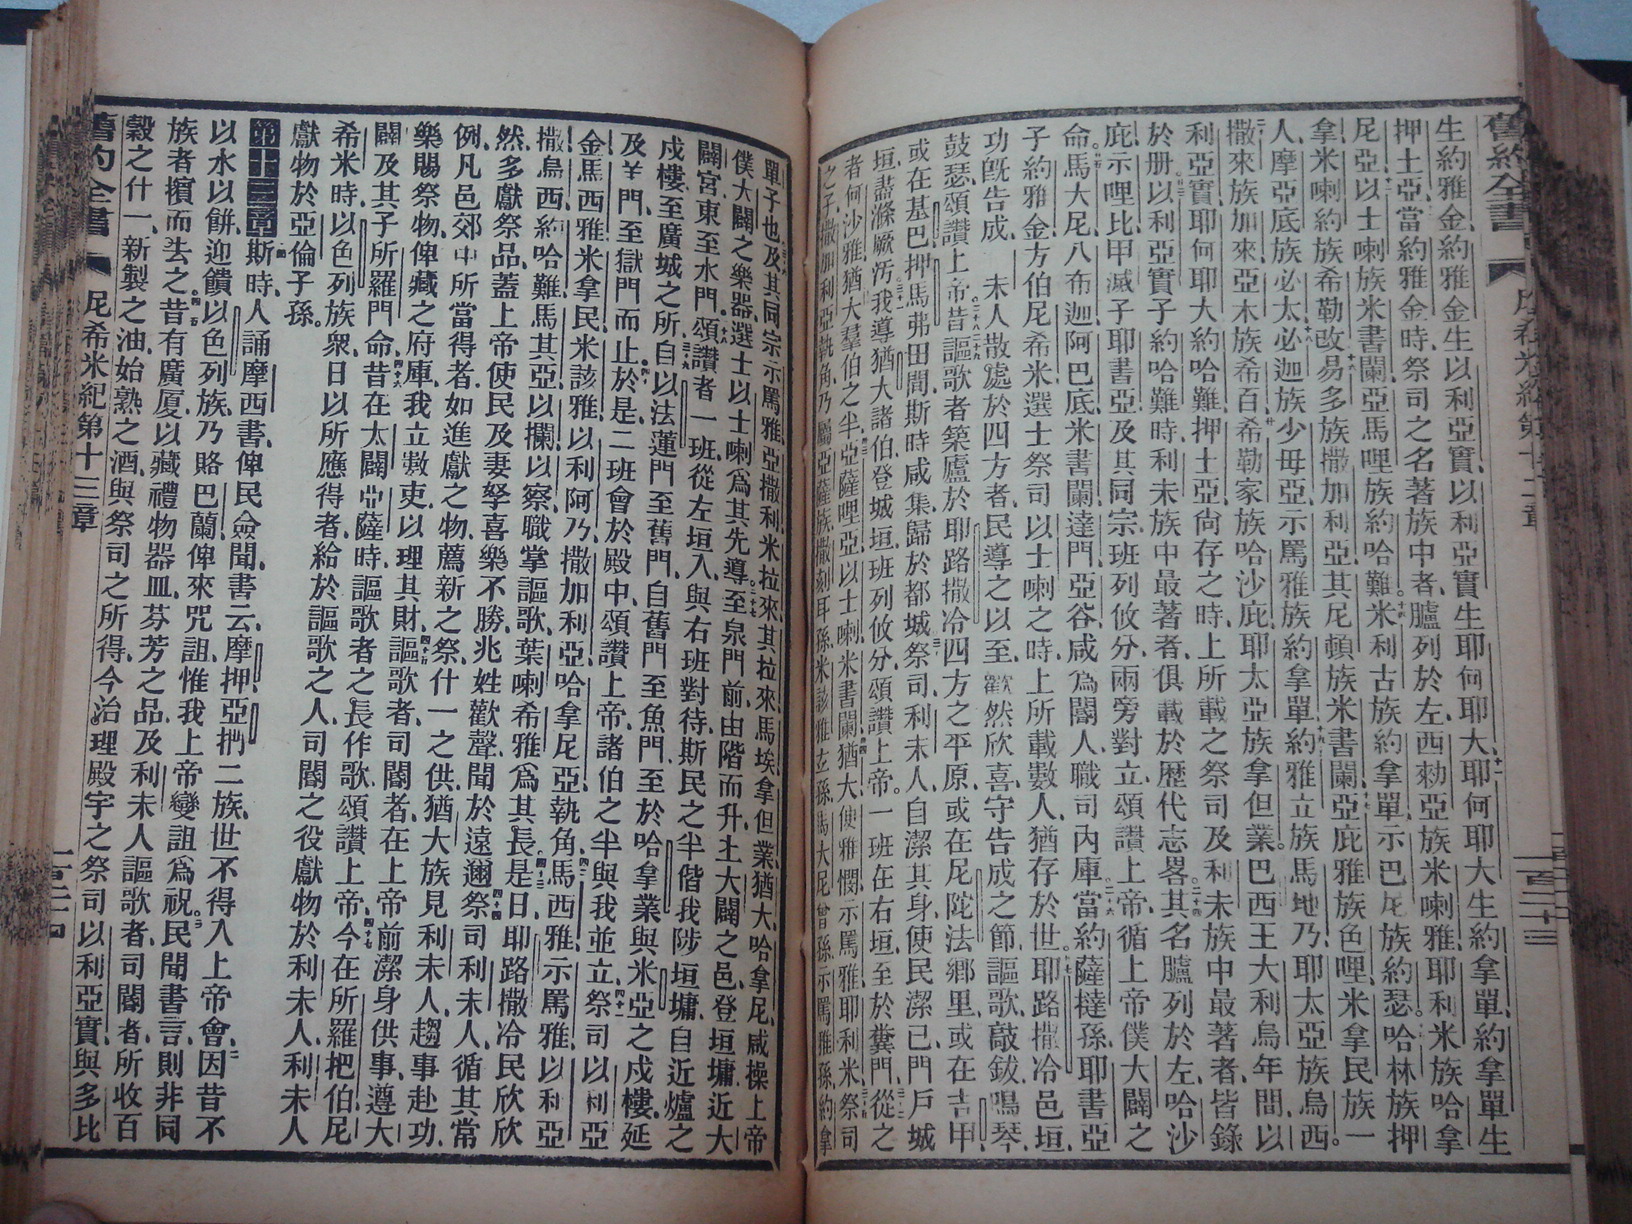 舊約全書
尼希米紀第十二章
一百二十三
生約雅金、約雅金生以利亞實、以利亞實生耶何耶大、耶何耶大生約拿單、約拿單生
押土亞、當約雅金時、祭司之名著族中者、臚列於左、西勑亞族米喇雅、耶利米族哈拿
尼亞、以士喇族米書闌、亞馬哩族約哈難、米利古族約拿單、示巴尼族約瑟、哈林族押
拿、米喇約族希勒改、易多族撒加利亞、其尼頓族米書闌、亞庇雅族色哩、米拿民族一
人、摩亞底族必太、必迦族少毋亞、示罵雅族約拿單、約雅立族馬地乃、耶太亞族烏西、
撒來族加來、亞木族希百、希勒家族哈沙庇、耶太亞族拿但業、巴西王大利烏年間、以
利亞實、耶何耶大、約哈難、押土亞、尚存之時、上所載之祭司、及利未族中最著者、皆錄
於册、以利亞實子約哈難時、利未族中最著者、俱載於歷代志畧、其名臚列於左、哈沙
庇、示哩比、甲滅子耶書亞、及其同宗、班列攸分、兩旁對立、頌讚上帝、循上帝僕大闢之
命、馬大尼、八布迦、阿巴底、米書闌、達門、亞谷、咸爲閽人、職司內庫、當約薩撻孫耶書亞
子約雅金、方伯尼希米、選士祭司以士喇之時、上所載數人、猶存於世、耶路撒冷邑垣、
功旣告成、未人散處於四方者、民導之以至、歡然欣喜、守告成之節、謳歌敲鈸、鳴琴、
鼓瑟、頌讚上帝、昔謳歌者築廬於耶路撒冷四方之平原、或在尼陀法鄉里、或在吉甲、
或在基巴押馬弗田間、斯時咸集、歸於都城、祭司利未人、自潔其身、使民潔己、門戶城
垣、盡滌厥汚、我導猶大諸伯登城垣、班列攸分、頌讚上帝、一班在右垣、至於糞門、從之
者、何沙雅、猶大羣伯之半、亞薩哩亞、以士喇、米書闌、猶大、便雅憫、示罵雅、耶利米、祭司
之子、撒加利亞執角、乃屬亞薩族、撒刻耳孫、米該雅玄孫、馬大尼曾孫、示罵雅孫、約拿
單子也、及其同宗示罵雅、亞撒利、米拉來、其拉來、馬埃、拿但業、猶大、哈拿尼、咸操上帝
僕大闢之樂器、選士以士喇爲其先導、至泉門前、由階而升土大闢之邑、登垣墉、近大
闢宮、東至水門、頌讚者一班、從左垣入、與右班對待、斯民之半偕我陟垣墉、自近爐之
戍樓、至廣城之所、自以法蓮門、至舊門、自舊門至魚門、至於哈拿業與米亞之戍樓、延
及羊門、至獄門而止、於是二班會於殿中、頌讚上帝、諸伯之半、與我並立、祭司以利亞
金、馬西雅、米拿民、米該雅、以利阿乃、撒加利亞、哈拿尼亞、執角、馬西雅、示罵雅、以利亞
撒、烏西、約哈難、馬其亞、以攔、以察、職掌謳歌、葉喇希雅爲其長、是日耶路撒冷民欣欣
然、多獻祭品、蓋上帝使民及妻孥喜樂不勝、兆姓歡聲、聞於遠邇、祭司利未人、循其常
例、凡邑郊中所當得者、如進獻之物、薦新之祭、什一之供、猶大族見利未人、趨事赴功、
樂賜祭物、俾藏之府庫、我立數吏、以理其財、謳歌者、司閽者、在上帝前潔身供事、遵大
闢及其子所羅門命、昔在大闢亞薩時、謳歌者之長、作歌頌讚上帝、今在所羅把伯尼
希米時、以色列族衆、日以所應得者、給於謳歌之人、司閽之役、獻物於利未人、利未人
獻物於亞倫子孫。
第十三章 斯時、人誦摩西書、俾民僉聞、書云、摩押亞捫二族、世不得入上帝會、因昔不
以水以餅、迎饋以色列族、乃賂巴蘭俾來咒詛、惟我上帝變詛爲祝、民聞書言、則非同
族者擯而去之、昔有廣厦、以藏禮物、器皿、芬芳之品、及利未人、謳歌者、司閽者、所收百
穀之什一、新製之油、始熟之酒、與祭司之所得、今治理殿宇之祭司以利亞實、與多比
舊約全書
尼希米紀第十三章
一百二十四